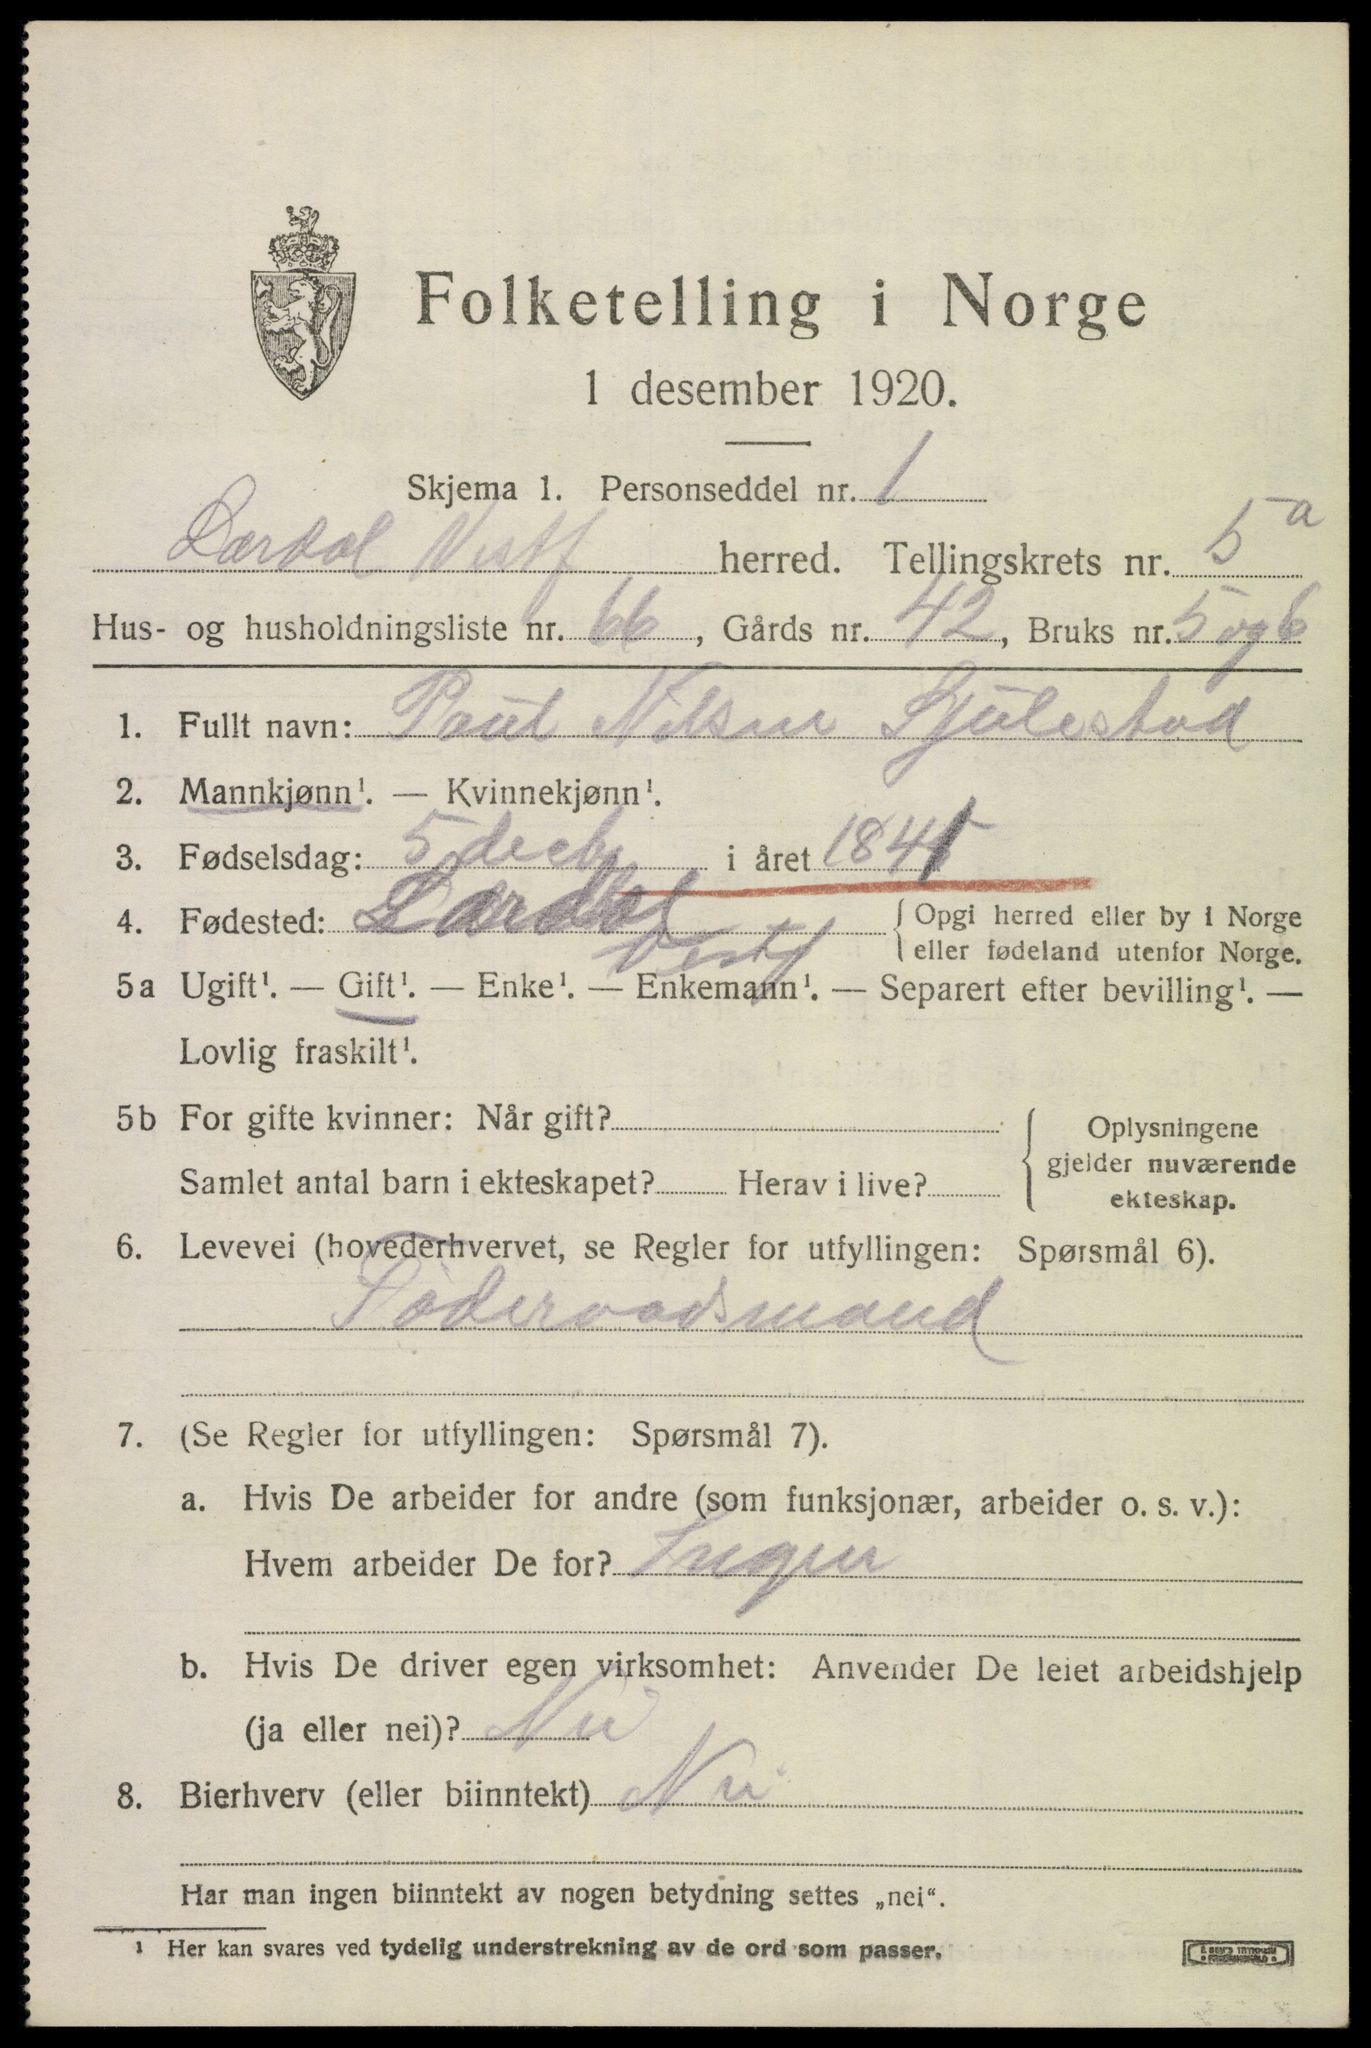 Folketelling i Norge
1 desember 1920.
Skjema 1. Personseddel nr. 1
Lardal Vestf herred. Tellingskrets nr. 5a
Hus- og husholdningsliste nr. 66, Gårds nr. 42, Bruks nr. 5 og 6
1. Fullt navn: Paul Nilsen Sjulestad
2. Mannkjønn¹. — Kvinnekjønn¹.
3. Fødselsdag: 5 decbr i året 1841
4. Fødested: Lardal { Opgi herred eller by i Norge
Vestf eller fødeland utenfor Norge.
5a Ugift¹. — Gift¹. — Enke¹. — Enkemann¹. — Separert efter bevilling¹. —
Lovlig fraskilt¹.
5b For gifte kvinner: Når gift? { Oplysningene
gjelder nuværende
Samlet antal barn i ekteskapet? Herav i live? ekteskap.
6. Levevei (hovederhvervet, se Regler for utfyllingen: Spørsmål 6).
Föderaadsmand
7. (Se Regler for utfyllingen: Spørsmål 7).
a. Hvis De arbeider for andre (som funksjonær, arbeider o. s. v.):
Hvem arbeider De for? Ingen
b. Hvis De driver egen virksomhet: Anvender De leiet arbeidshjelp
(ja eller nei)? Nei
8. Bierhverv (eller biinntekt) Nei
Har man ingen biinntekt av nogen betydning settes „nei“.
¹ Her kan svares ved tydelig understrekning av de ord som passer.